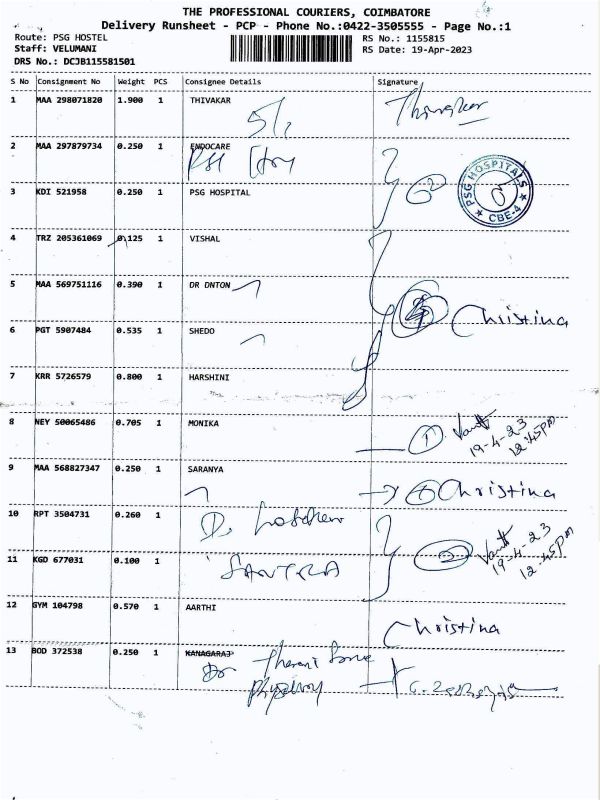 THE PROFESSIONAL COURIERS, COIMBATORE
Delivery Runsheet - PCP - Phone No.:0422-3505555 - Page No.:1
Route: PSG HOSTEL RS No.: 1155815
Staff: VELUMANI RS Date: 19-Apr-2023
DRS No.: DCJB115581501
S No Consignment No Weight PCS Consignee Details Signature
1 MAA 298071820 1.900 1 THIVAKAR
2 MAA 297879734 0.250 1 ENDOCARE
PSG HOSPITALS
CBE-4
3 KDI 521958 0.250 1 PSG HOSPITAL
4 TRZ 205361069 0.125 1 VISHAL
5 MAA 569751116 0.390 1 DR DNTON
6 PGT 5907484 0.535 1 SHEDO Christina
7 KRR 5726579 0.800 1 HARSHINI
8 NEY 50065486 0.705 1 MONIKA 1
19-4-23
12.45PM
9 MAA 568827347 0.250 1 SARANYA
Christina
10 RPT 3504731 0.260 1 D.
11 KGD 677031 0.100 1 2
19-4-23
12.45PM
12 GYM 104798 0.570 1 AARTHI
Christina
13 BOD 372538 0.250 1 KANAGARAJ
Dr